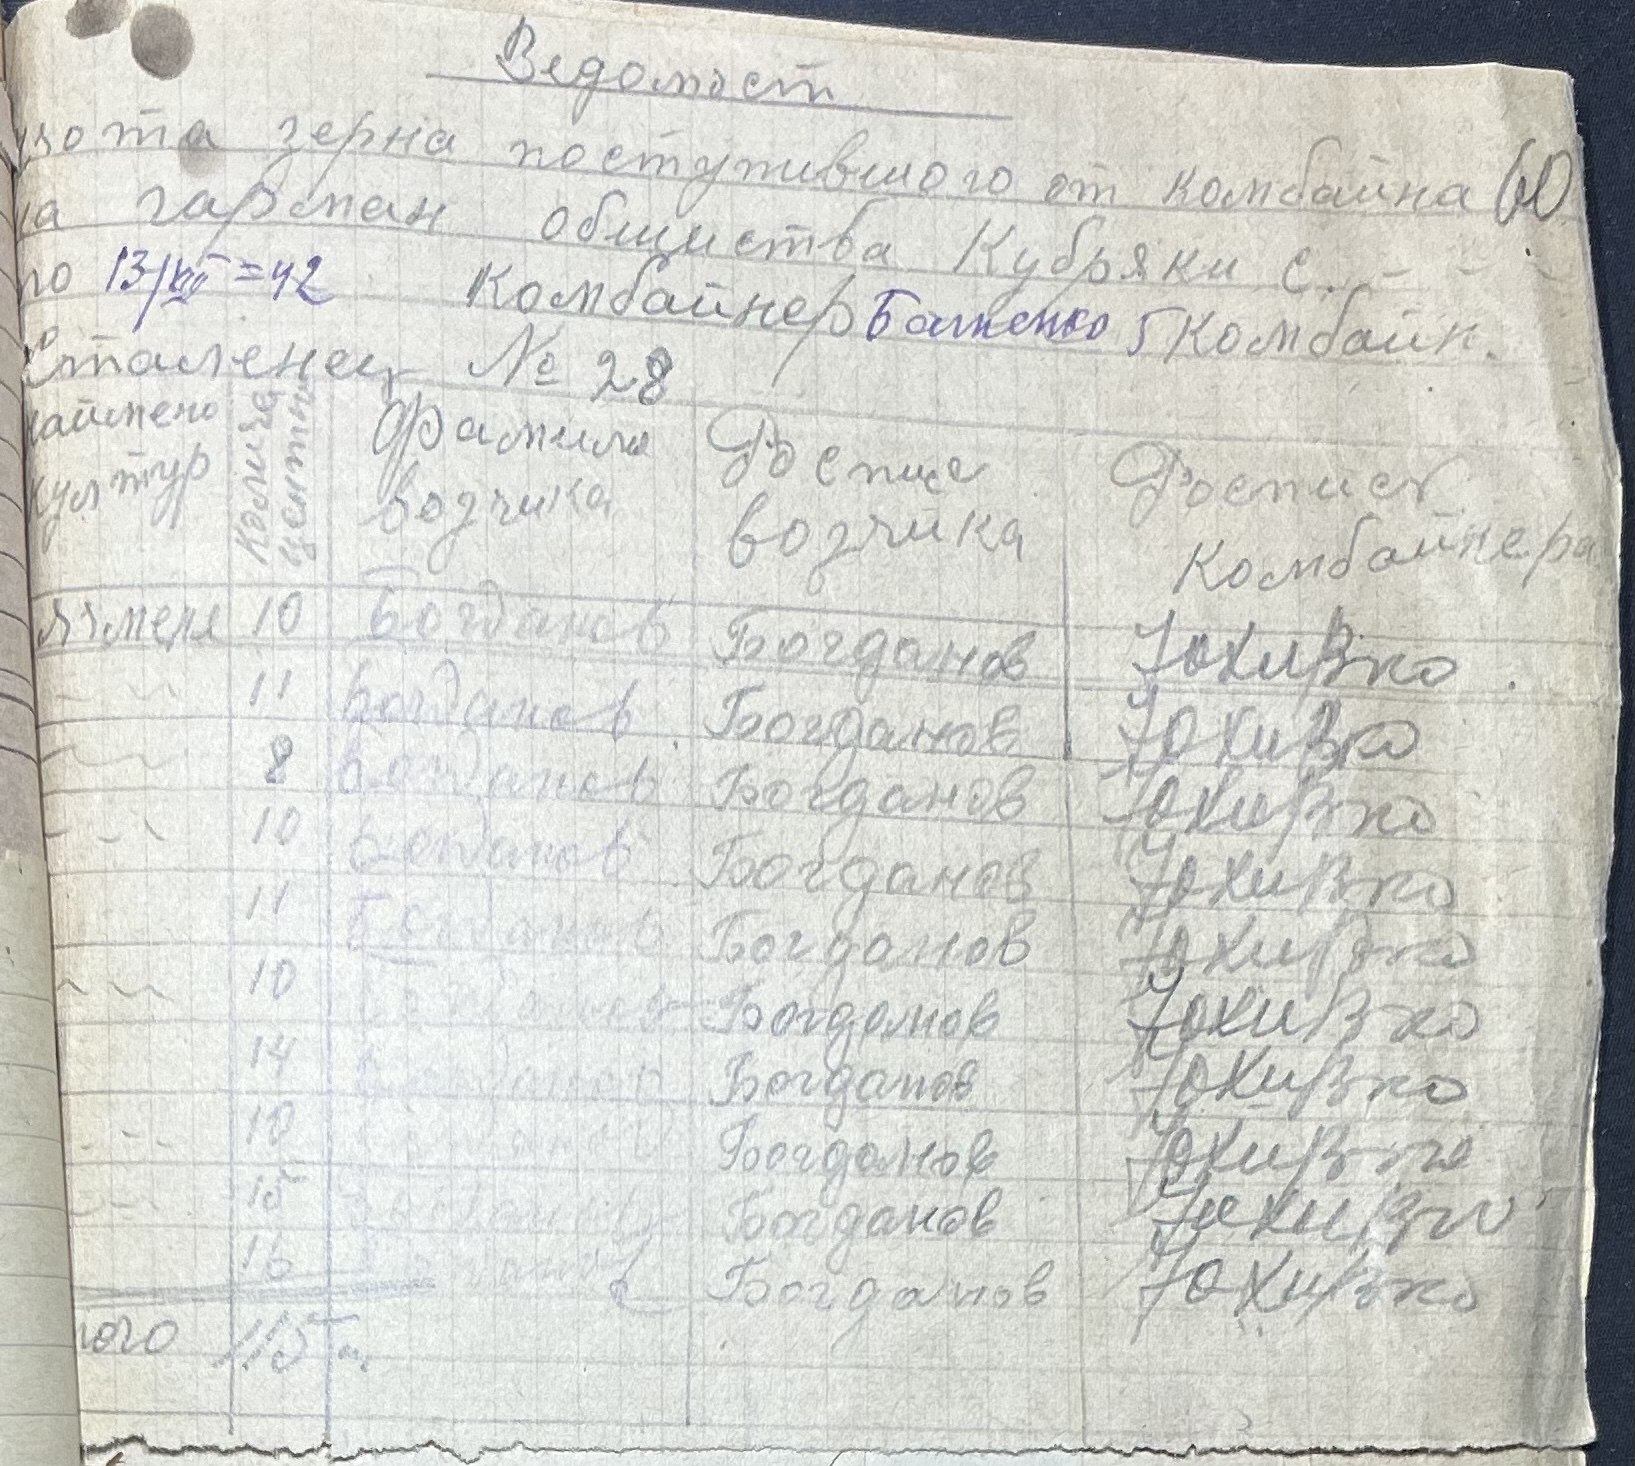 Ведомост
учота зерна поступившого от комбайна
60
на гарман общиства Кубряки с.
по 13/VII=42 Комбайнер Баженко 5 Комбайн.
Сталенец № 28
наймено культур Количе центн Фамилия возчика Роспис возчика Роспист комбайнера
ячмень 10 Богданов Богданов Юхивко
11 Богданов Богданов Юхивко
8 Богданов Богданов Юхивко
10 Богданов Богданов Юхивко
11 Богданов Богданов Юхивко
10 Богданов Богданов Юхивко
14 Богданов Богданов Юхивко
10 Богданов Богданов Юхивко
15 Богданов Богданов Юхивко
16 Богданов Богданов Юхивко
того 115 ц.